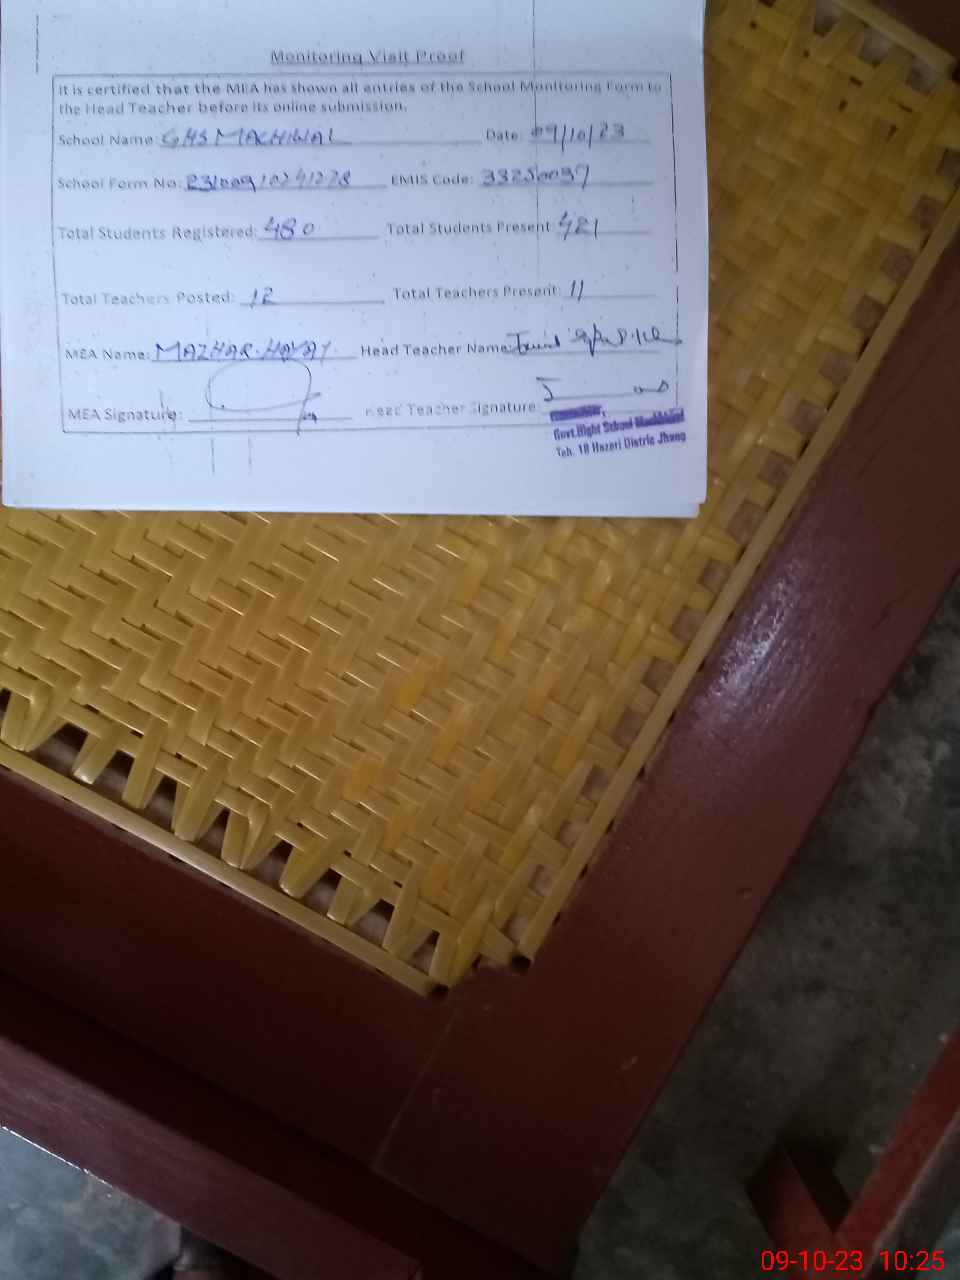 Monitoring Visit Proof
It is certified that the MEA has shown all entries of the School Monitoring Form to
the Head Teacher before its online submission.
School Name: GHS MACHIWAL Date: 09/10/23
School Form No: 23100910241278 EMIS Code: 33250037
Total Students Registered: 480 Total Students Present: 421
Total Teachers Posted: 12 Total Teachers Present: 11
MEA Name: MAZHAR.HAYAT Head Teacher Name:
MEA Signature: Head Teacher Signature:
Govt.Hight School
Teh. 18 Hazari Distric Jhang
09-10-23 10:25